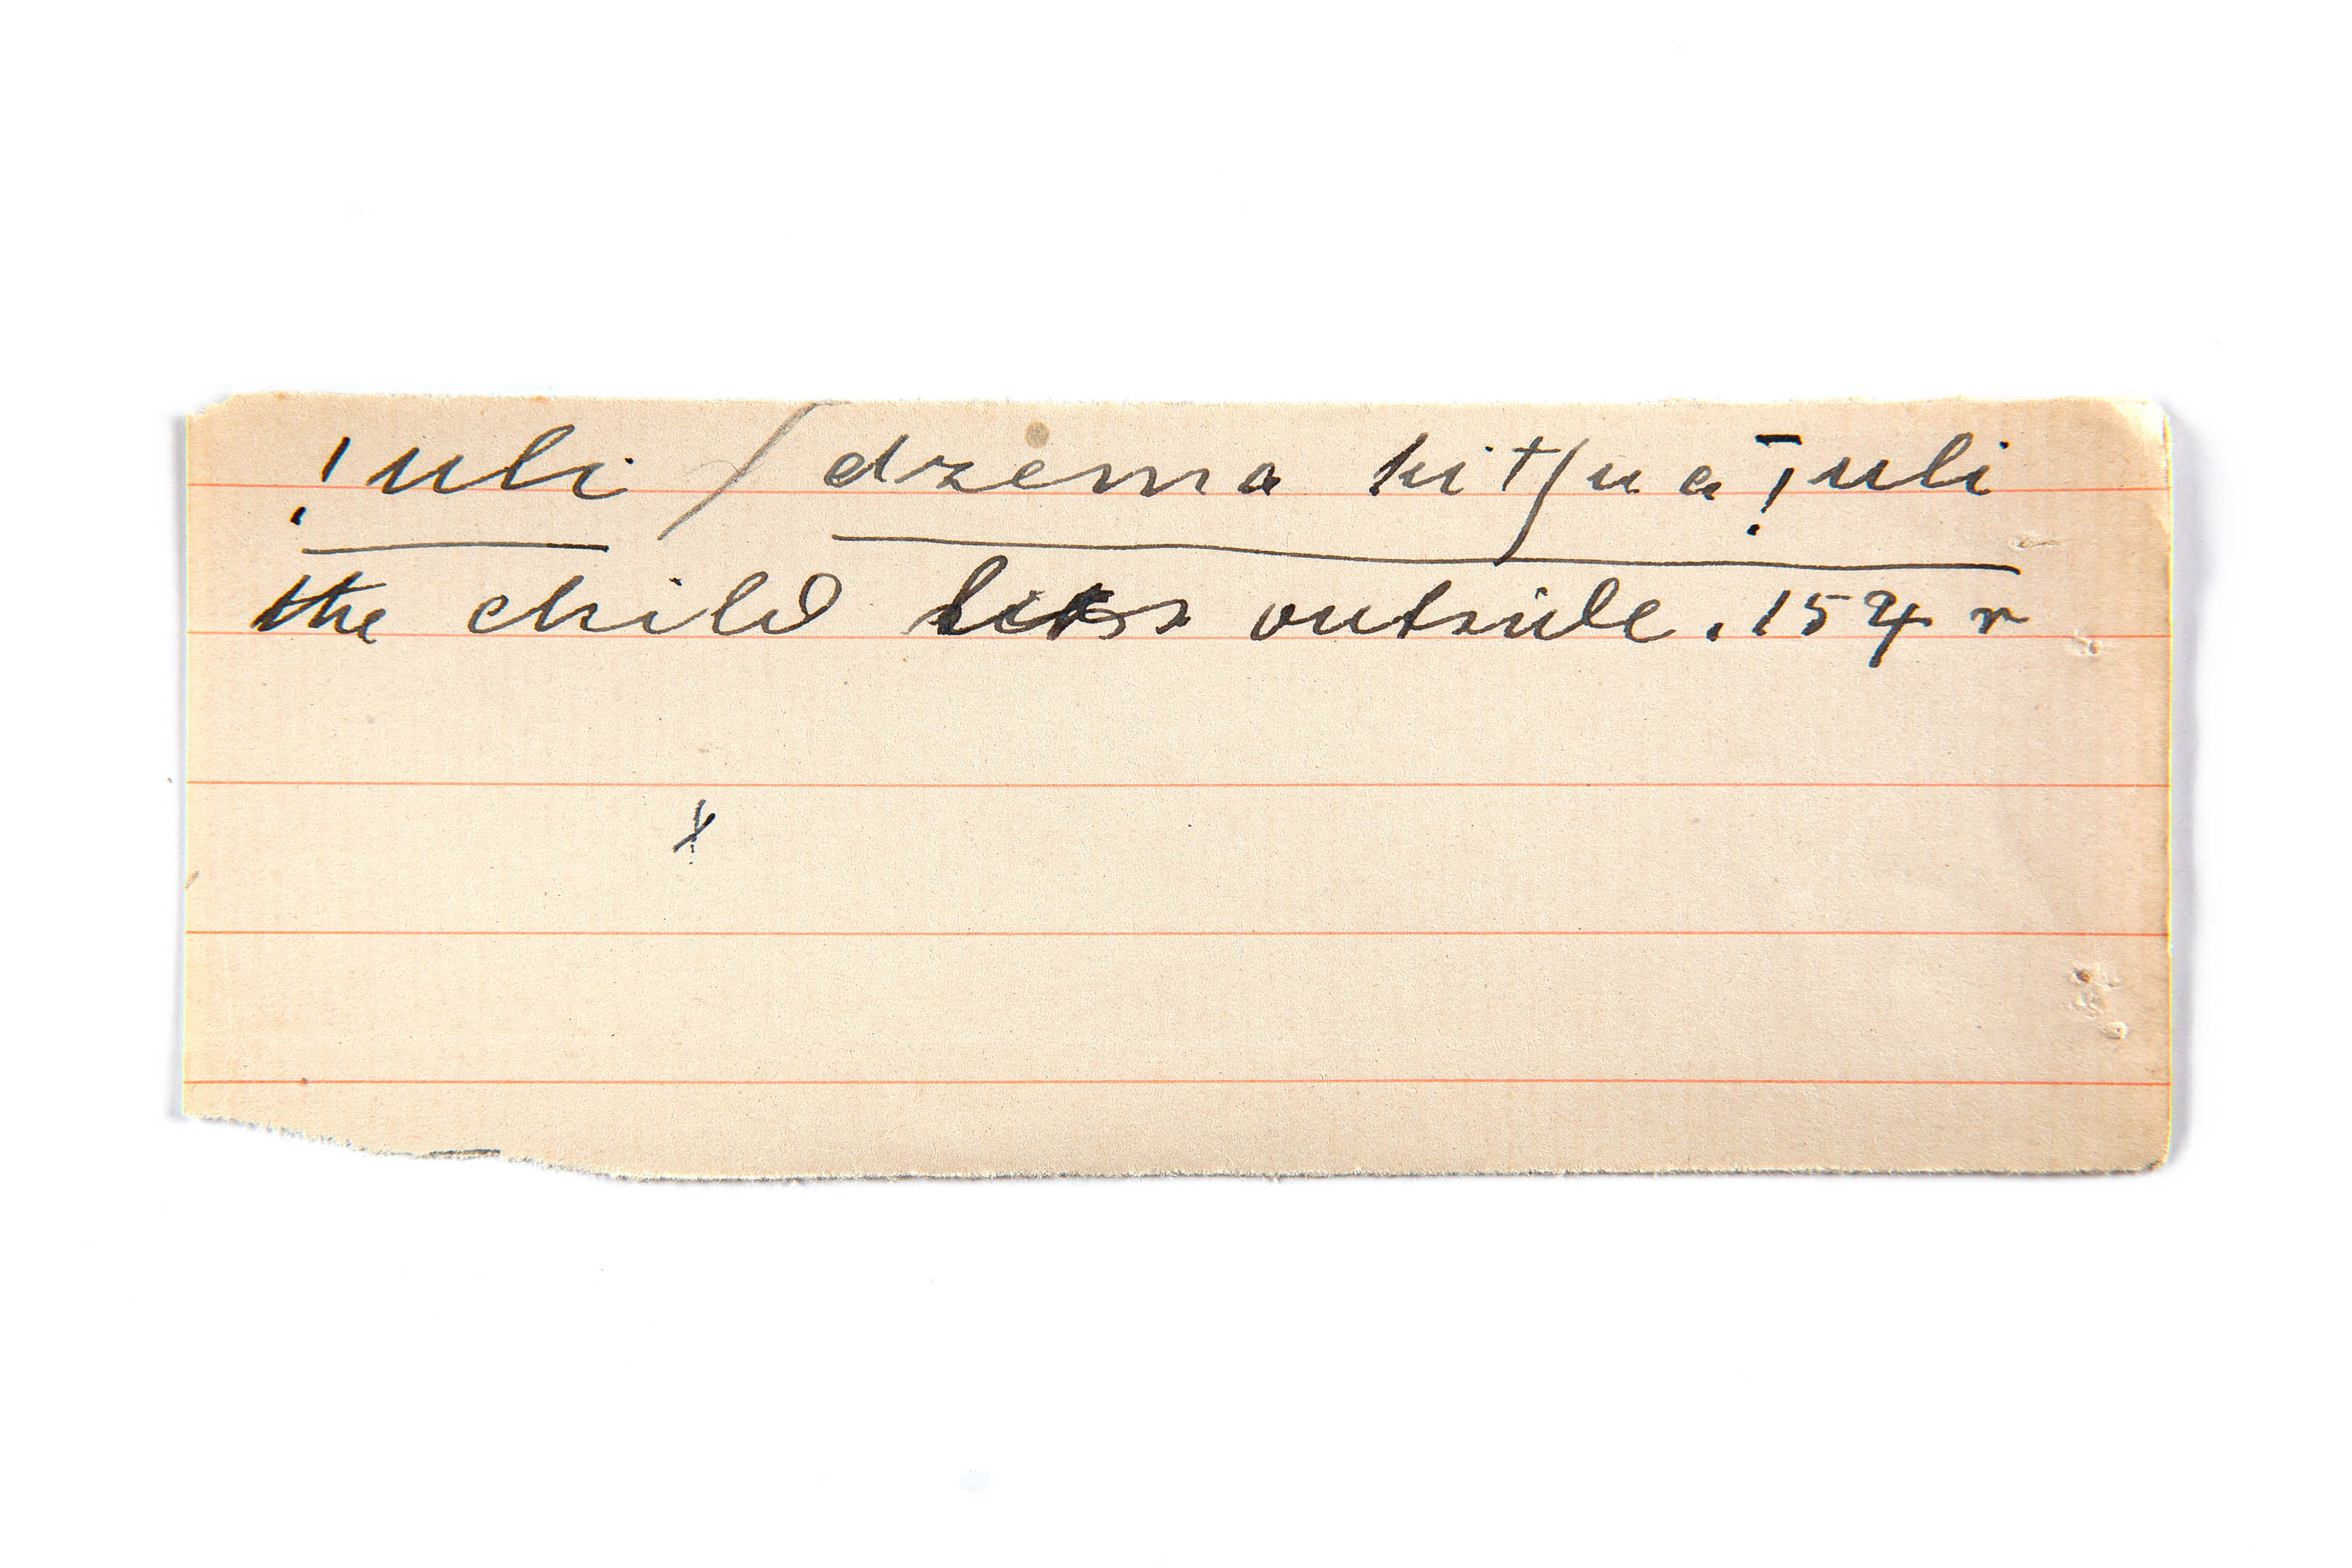 !uli / dzema kitʃua ǃ̄uli
the child outside. 154 r
x